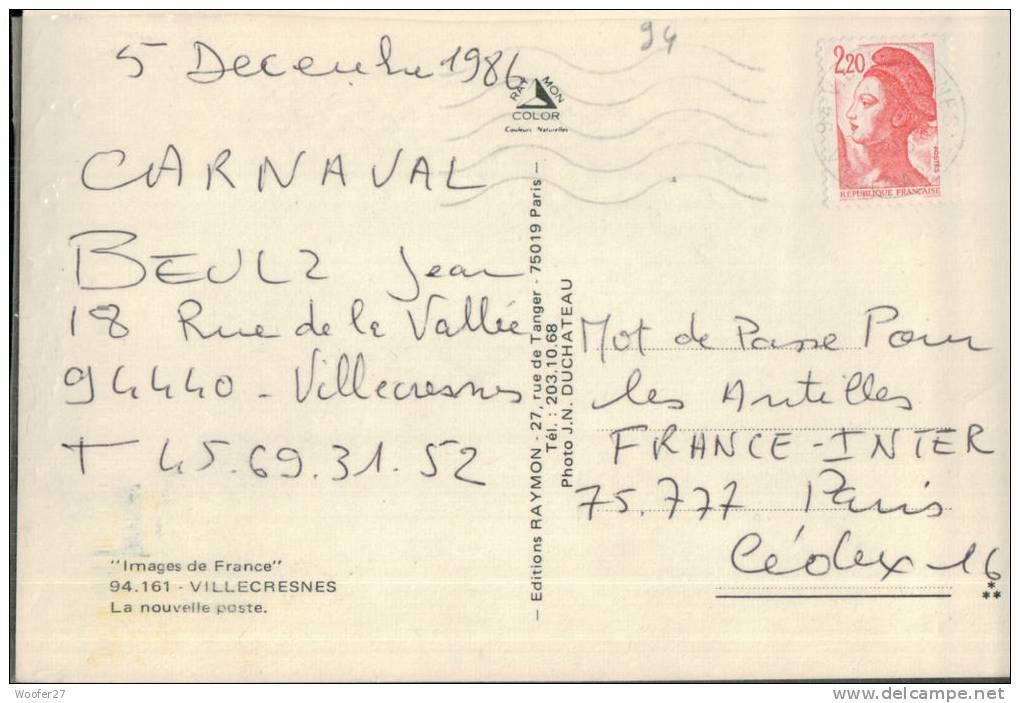 5 Decembre 1986
94
RAY MON
COLOR
Couleurs Naturelles
2,20
POSTES
REPUBLIQUE FRANÇAISE
CARNAVAL
BEULZ Jean
18 Rue de la Vallée
94440 - Villecresnes
T 45.69.31.52
"Images de France"
94.161 - VILLECRESNES
La nouvelle poste.
— Editions RAYMON - 27, rue de Tanger - 75019 Paris —
Tél. : 203.10.68
Photo J.N. DUCHATEAU
Mot de Passe Pour
les Antilles
FRANCE-INTER
75.777 Paris
Cédex 16
Woofer27
www.delcampe.net